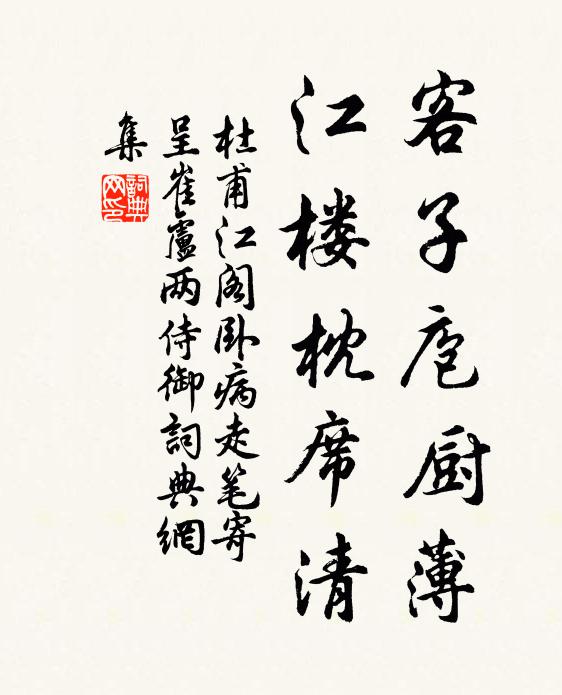 客子庖厨薄
江楼枕席清
杜甫江阁卧病走笔寄
呈崔盧两侍御詞典網
集
詞典
网印